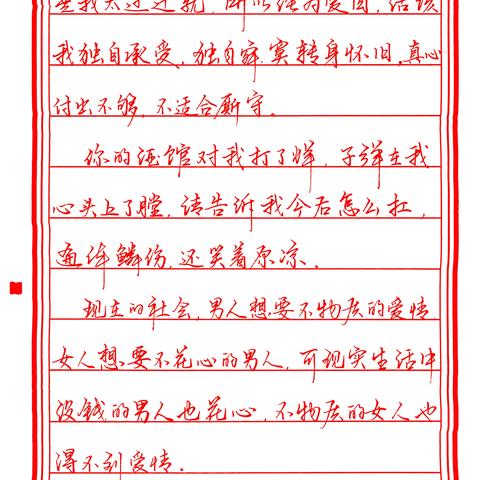 我独自承受,独自寂寞转身怀旧,真心
付出不够,不适合厮守。
你的酒馆对我打了烊,子弹在我
心头上了膛,请告诉我今后怎么扛,
遍体鳞伤,还笑着原凉.
现在的社会,男人想要不物质的爱情,
女人想要不花心的男人,可现实生活中
没钱的男人也花心,不物质的女人也
得不到爱情.